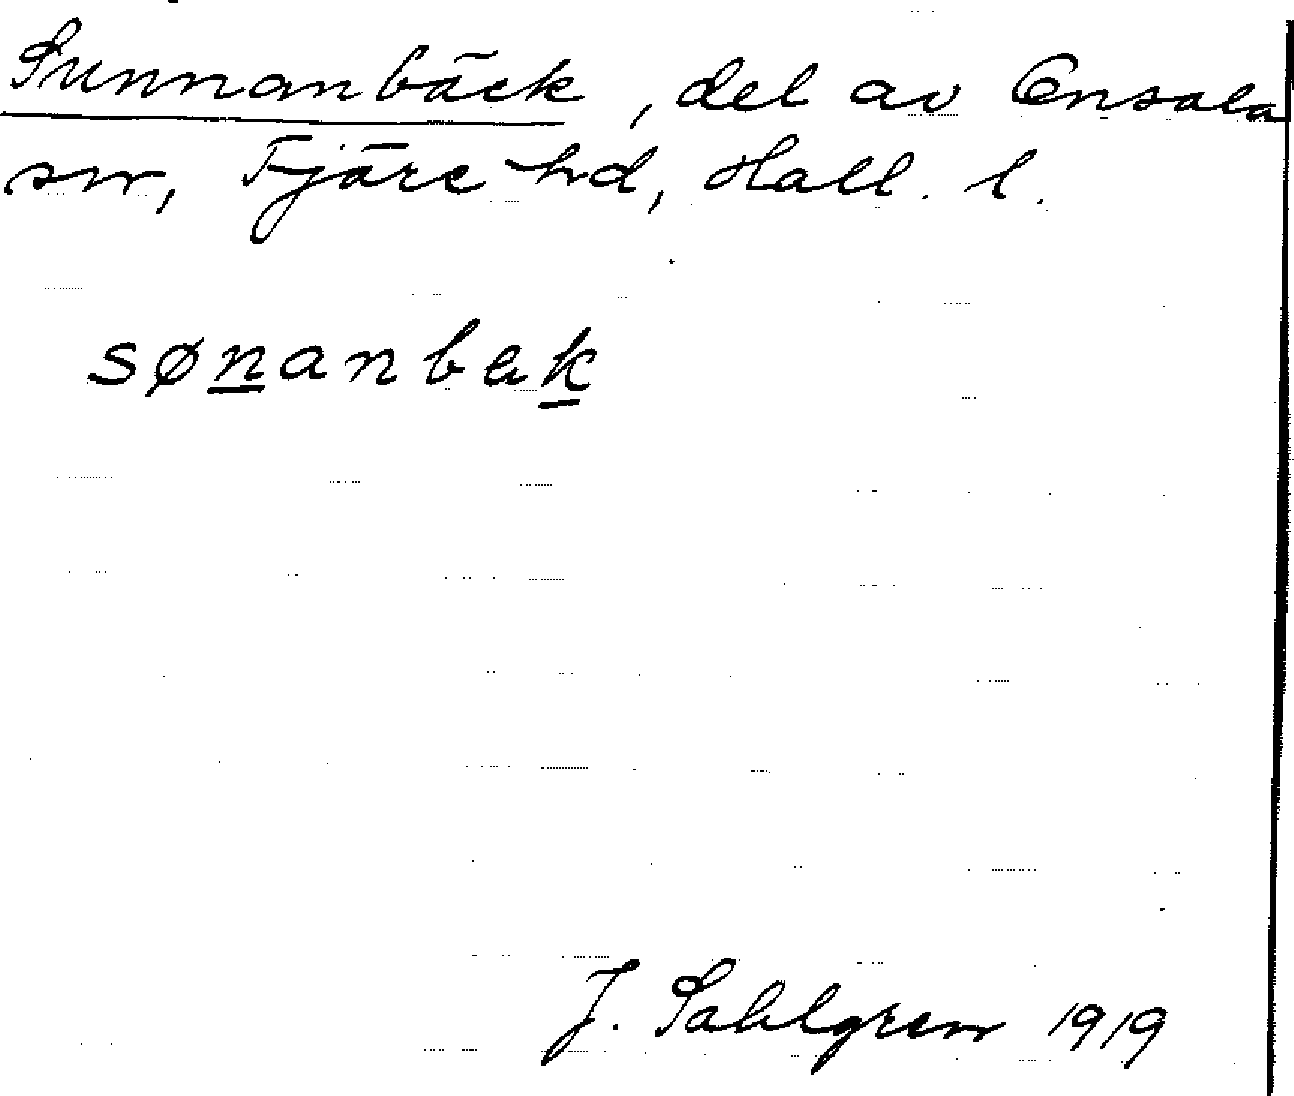 Sunnanbäck, del av Onsala
sn, Fjäre hd, Hall. l.
sønanbak
J. Sahlgren 1919